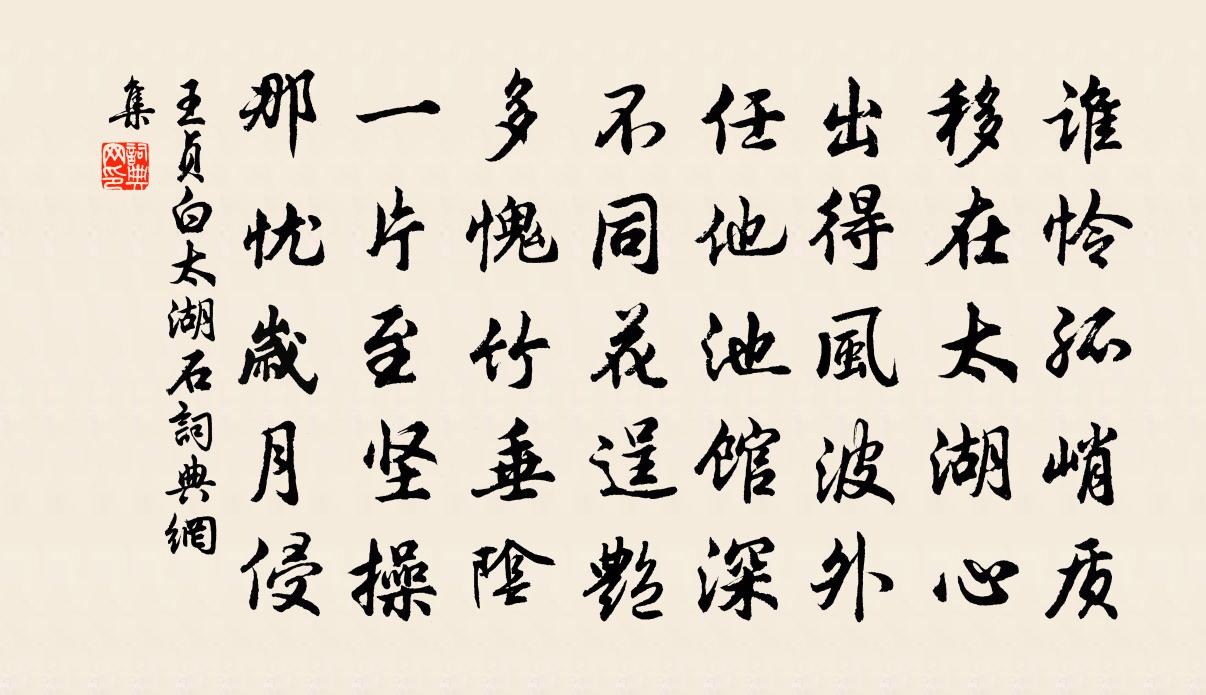 谁怜孤峭质
移在太湖心
出得風波外
任他池馆深
不同花逞艷
多愧竹垂陰
一片至坚操
那忧歲月侵
王貞白太湖石詞典網
集
詞典网印